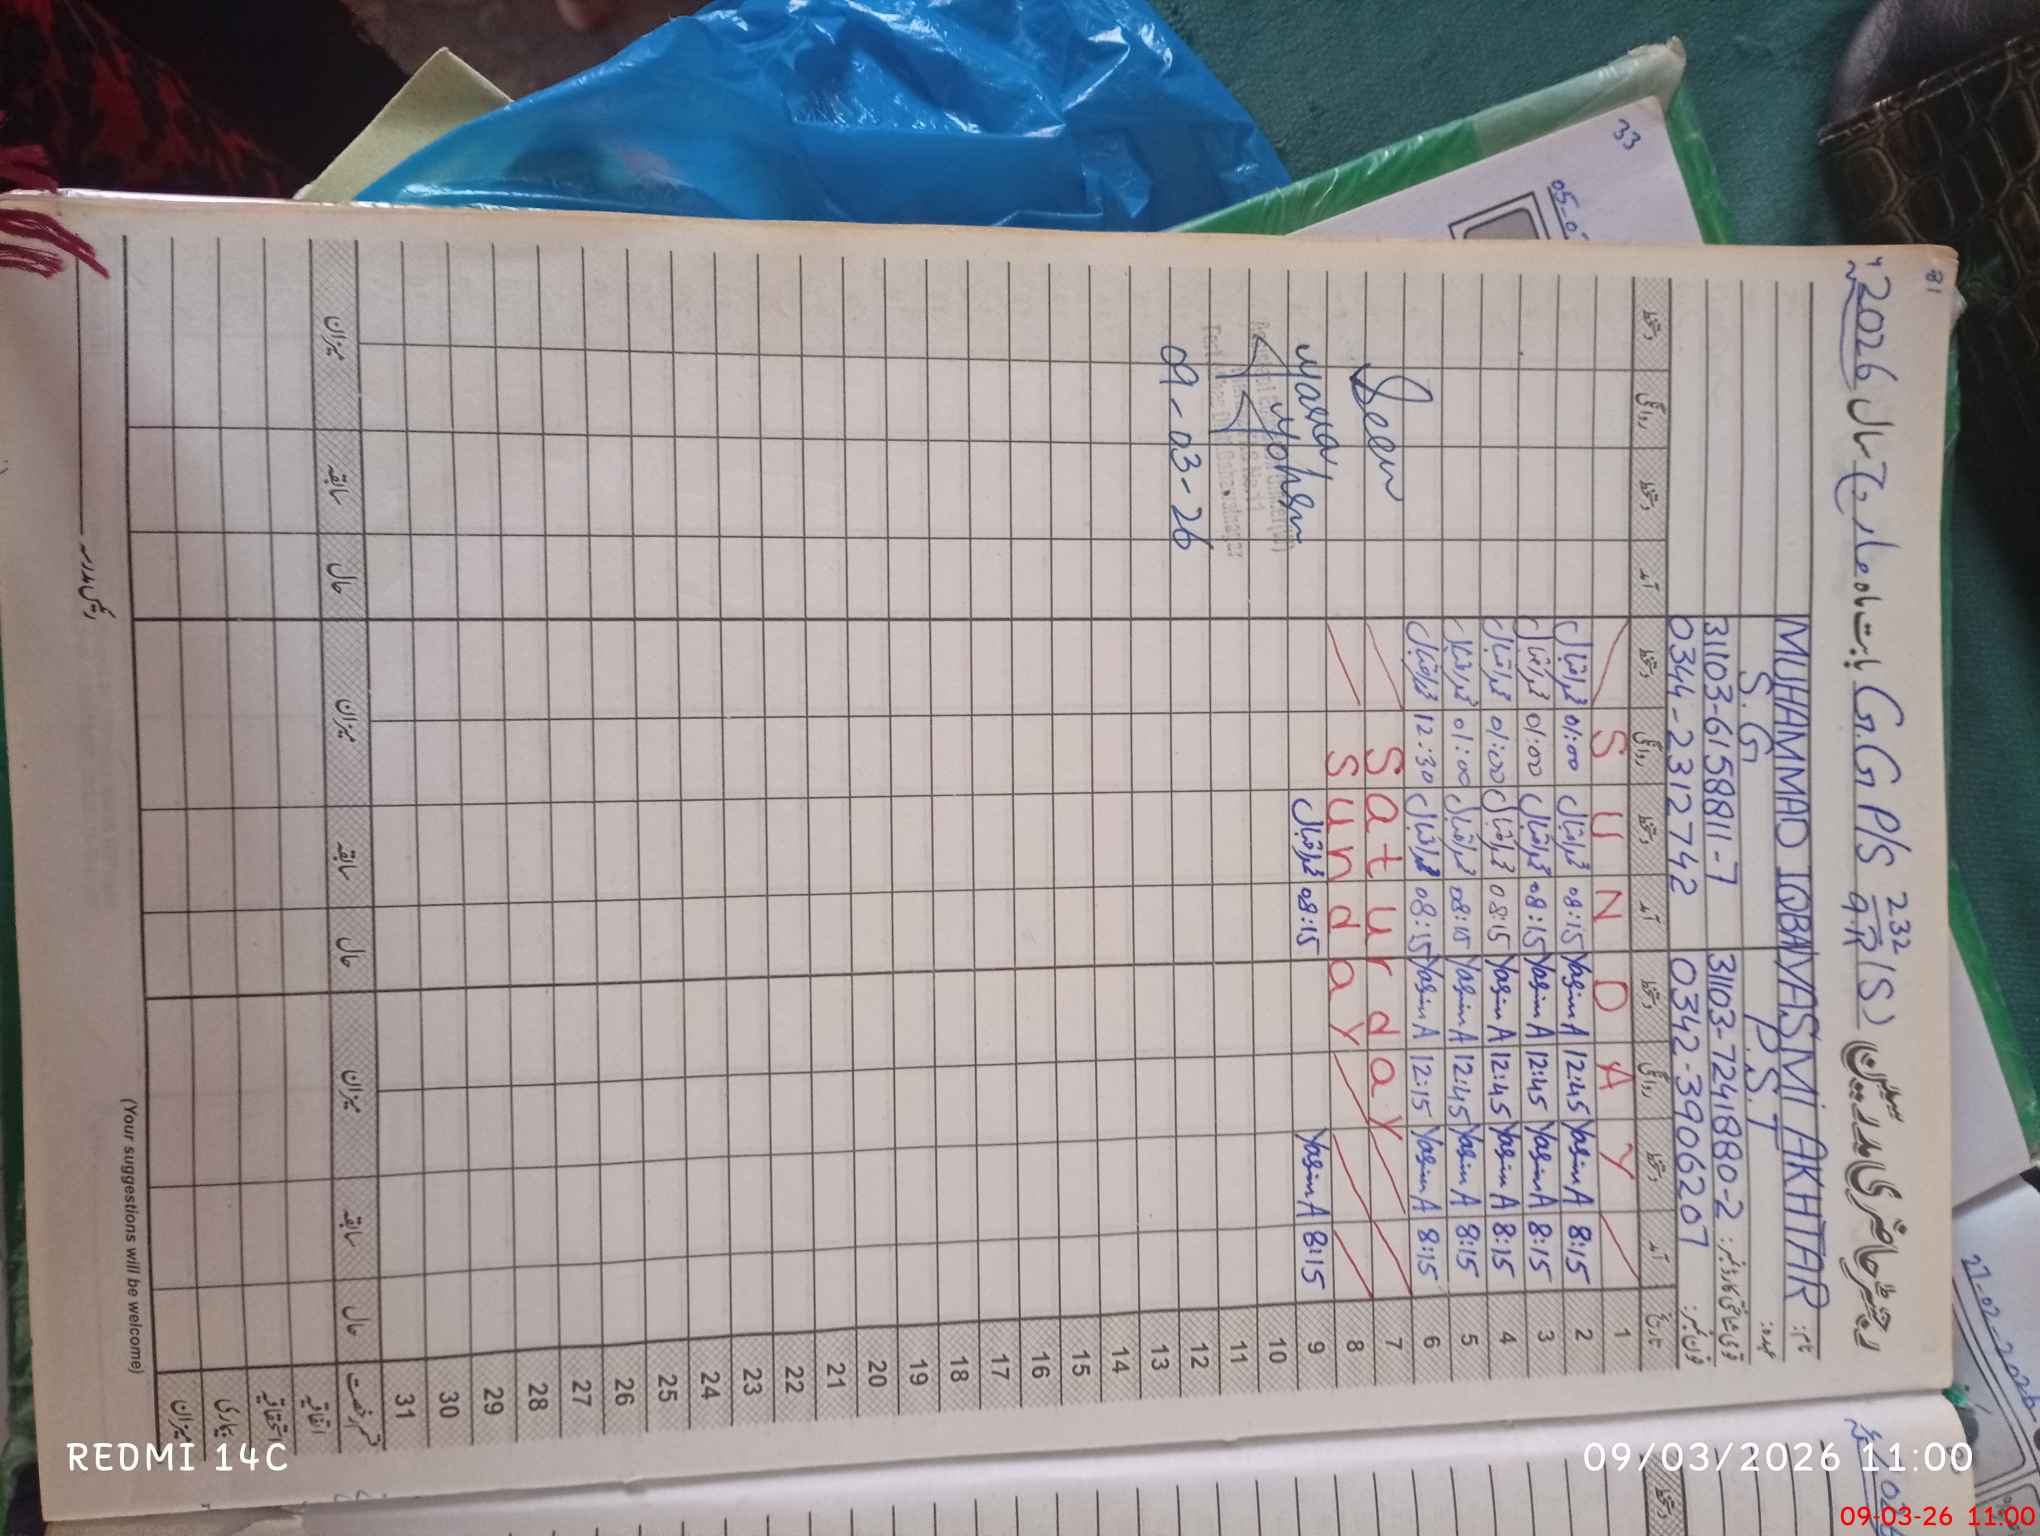 81
دفتر حاضری مدرسین G.G P/S 232/9R (S) بابت ماہ مارچ سال 2026
نام: YASMI AKHTAR MUHAMMAD IQBAL
عہدہ: P.S.T S.G
قومی شناختی کارڈ نمبر: 31103-7241880-2 31103-6158811-7
فون نمبر: 0342-3906207 0344-2312742
تاریخ آمد دستخط روانگی دستخط آمد دستخط روانگی دستخط آمد دستخط روانگی دستخط
1 SUNDAY
2 8:15 Yasmin A 12:45 Yasmin A 08:15 محمد اقبال 01:00 محمد اقبال
3 8:15 Yasmin A 12:45 Yasmin A 08:15 محمد اقبال 01:00 محمد اقبال
4 8:15 Yasmin A 12:45 Yasmin A 08:15 محمد اقبال 01:00 محمد اقبال
5 8:15 Yasmin A 12:45 Yasmin A 08:15 محمد اقبال 01:00 محمد اقبال
6 8:15 Yasmin A 12:15 Yasmin A 08:15 محمد اقبال 12:30 محمد اقبال
7 Saturday
8 Sunday
9 8:15 Yasmin A 08:15 محمد اقبال
Seen
09-03-26
10
11
12
13
14
15
16
17
18
19
20
21
22
23
24
25
26
27
28
29
30
31
قسم رخصت حال سابقہ میزان حال سابقہ میزان حال سابقہ میزان
اتفاقیہ
استحقاقیہ
بیماری
میزان
(Your suggestions will be welcome)
33
27-02-2026
REDMI 14C
09/03/2026 11:00
09-03-26 11:00